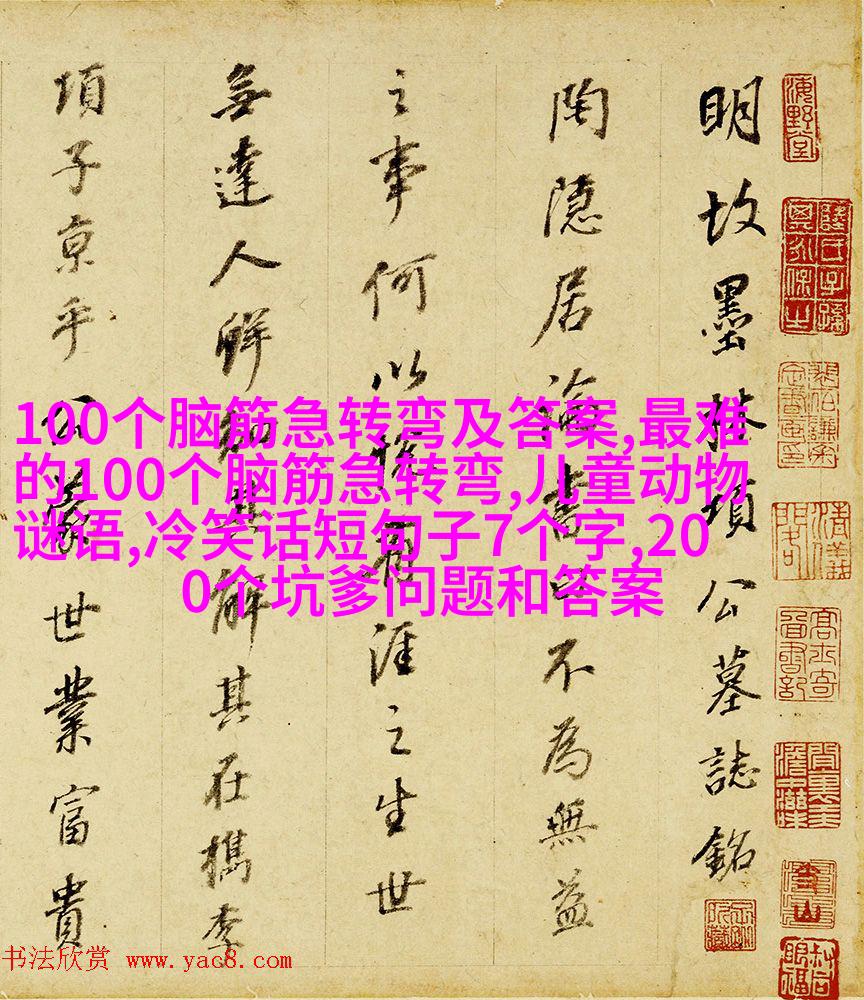 明故墨林項公墓誌銘
陶隱居論書不為無益
之事何以有涯之生世
無達人鮮解其在檇李
項子京乎公蒙世業富貴
海野堂
100个脑筋急转弯及答案,最难
的100个脑筋急转弯,儿童动物
谜语,冷笑话短句子7个字,20
0个坑爹问题和答案
书法欣赏 www.yac8.com